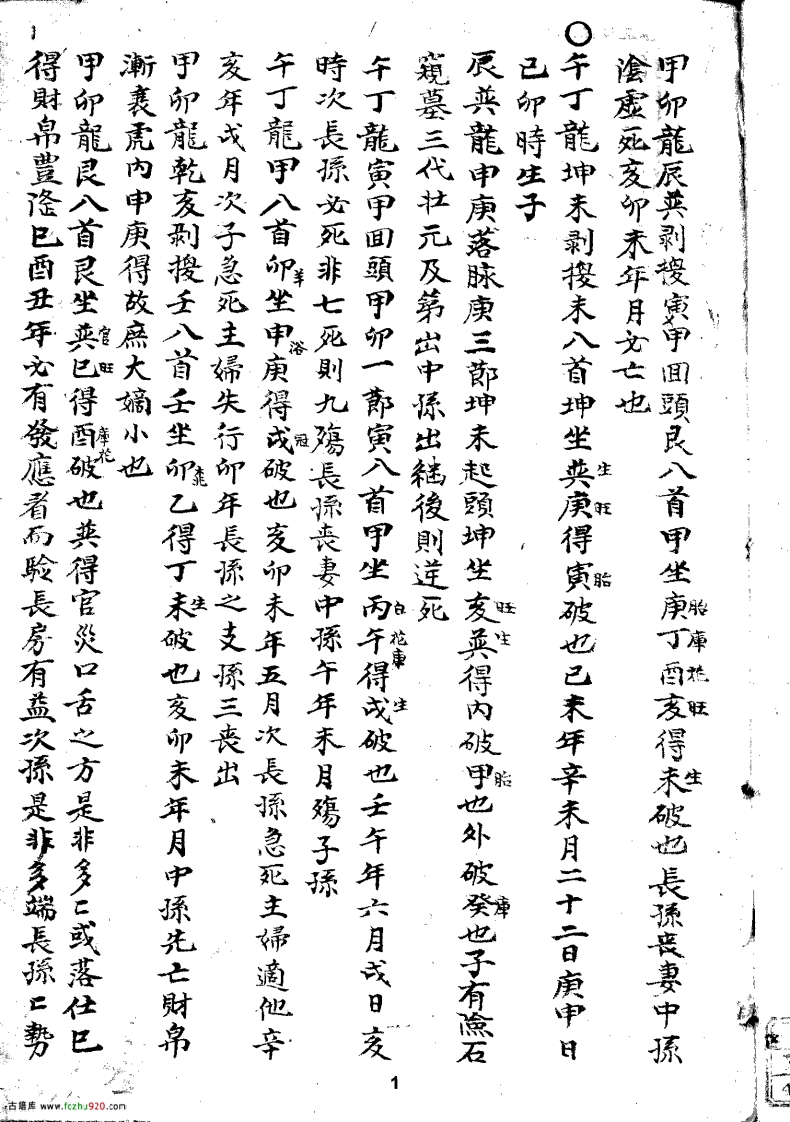 甲卯龍辰巽剝換寅甲回頭艮八首甲坐庚丁酉亥得未破也長孫喪妻中孫
胎庫花旺生
陰虛死亥卯未年月必亡也
午丁龍坤未剝換未八首坤坐巽庚得寅破也己未年辛未月二十二日庚申日
生旺胎
己卯時生子
辰巽龍申庚落脉庚三節坤未起頭坤坐亥巽得內破甲也外破癸也子有險石
旺生胎庫
窺墓三代壯元及第出中孫出繼後則逆死
午丁龍寅甲回頭甲卯一節寅八首甲坐丙午得戌破也壬午年六月戌日亥
花庫生
時次長孫必死非七死則九殤長孫喪妻中孫午年未月殤子孫
午丁龍甲八首卯坐申庚得戌破也亥卯未年五月次長孫急死主婦適他辛
羊浴冠
亥年戌月次子急死主婦失行卯年長孫之支孫三喪出
甲卯龍乾亥剝換壬八首壬坐卯乙得丁未破也亥卯未年月中孫先亡財帛
生
漸衰虎內申庚得故庶大嫡小也
甲卯龍艮八首艮坐巽巳得酉破也巽得官災口舌之方是非多〻或落仕巳
官旺庫花
得財帛豊隆巳酉丑年必有發應看而驗長房有益次孫是非多端長孫〻勢
1
古籍库 www.fczhu920.com